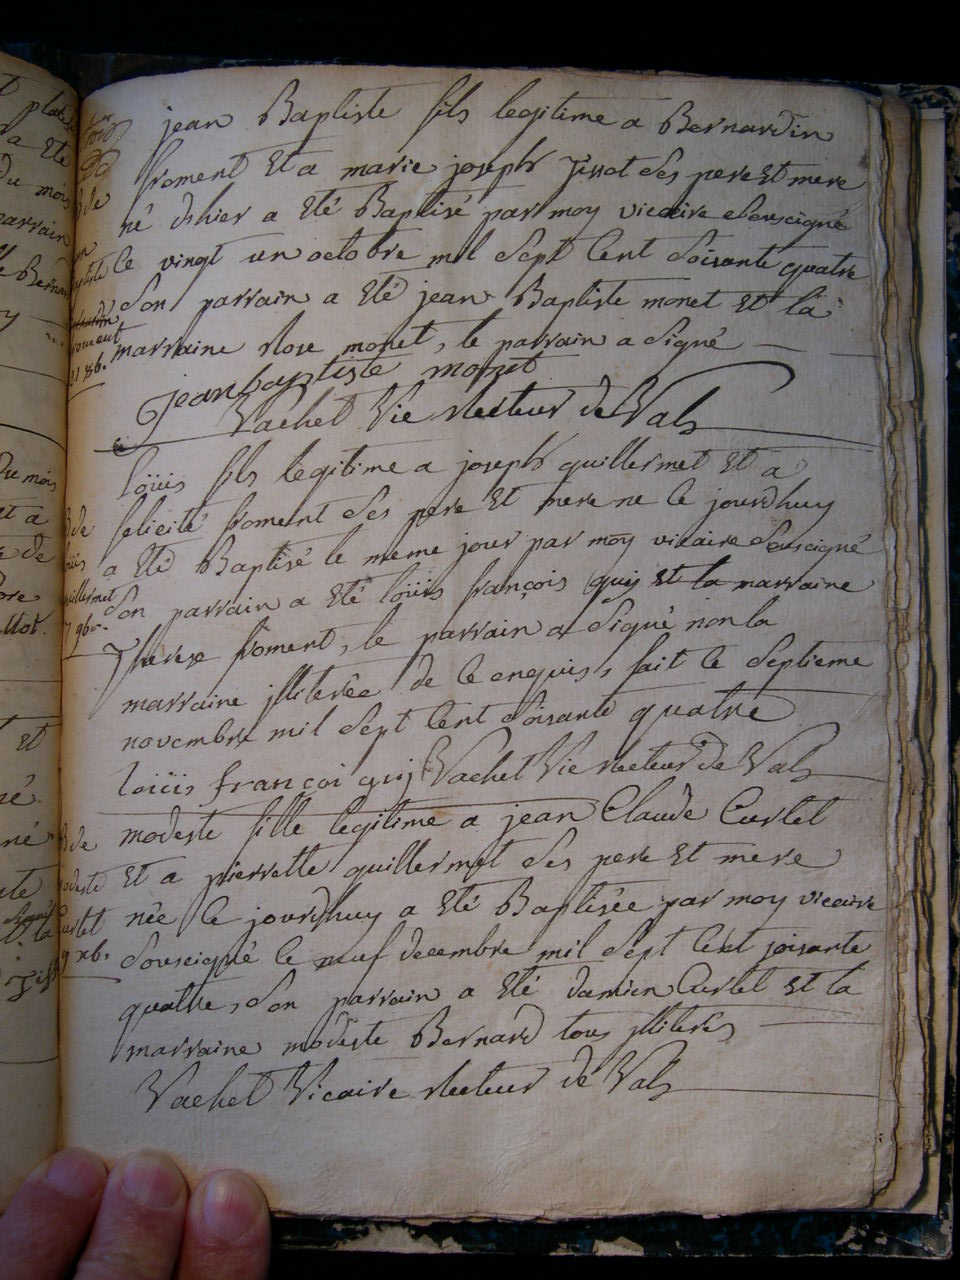 jean Baptiste fils legitime a Bernardin
froment Et a marie joseph Tissot Ses pere Et mere
né d'hier a Eté Baptisé par moy vicaire Souscigné
le vingt un octobre mil Sept Cent Soisante quatre
Son parrain a Eté jean Baptiste monet Et la
marraine Rose monet, le parrain a Signé
jean baptiste monet
Vachet Vic Recteur de Vals
loüis fils legitime a joseph guillermet Et a
felicité froment Ses pere Et mere ne le jourdhuy
a Eté Baptisé le meme jour par moy vicaire Souscigné
Son parrain a Eté loüis françois guij Et la marraine
Therese froment, le parrain a Signé non la
marraine jlliterée de ce enquis, fait le Septieme
novembre mil Sept Cent Soisante quatre
loüis françoi guij Vachet Vic Recteur de Vals
modeste fille legitime a jean Claude Curtet
Et a pierrette guillermet Ses pere Et mere
née le jourdhuy a Eté Baptisée par moy vicaire
Souscigné le neuf decembre mil Sept Cent soisante
quatre, Son parrain a Eté damien Curtet Et la
marraine modeste Bernard tous jlliterés
Vachet Vicaire Recteur de Vals